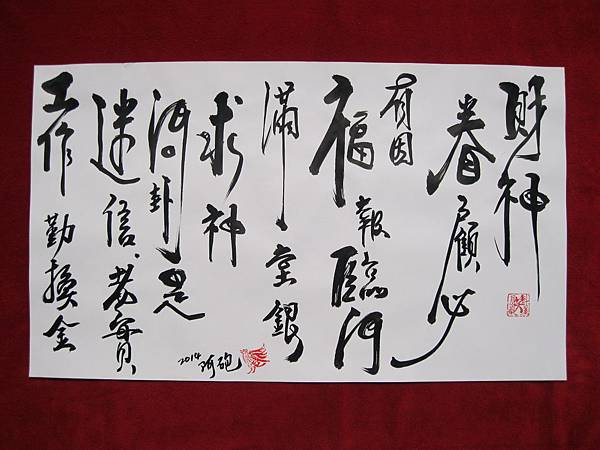 財神
眷顧必
有因
福報臨門
滿堂銀
求神
問卦是
迷信、老實
工作勤換金
2014 阿砲